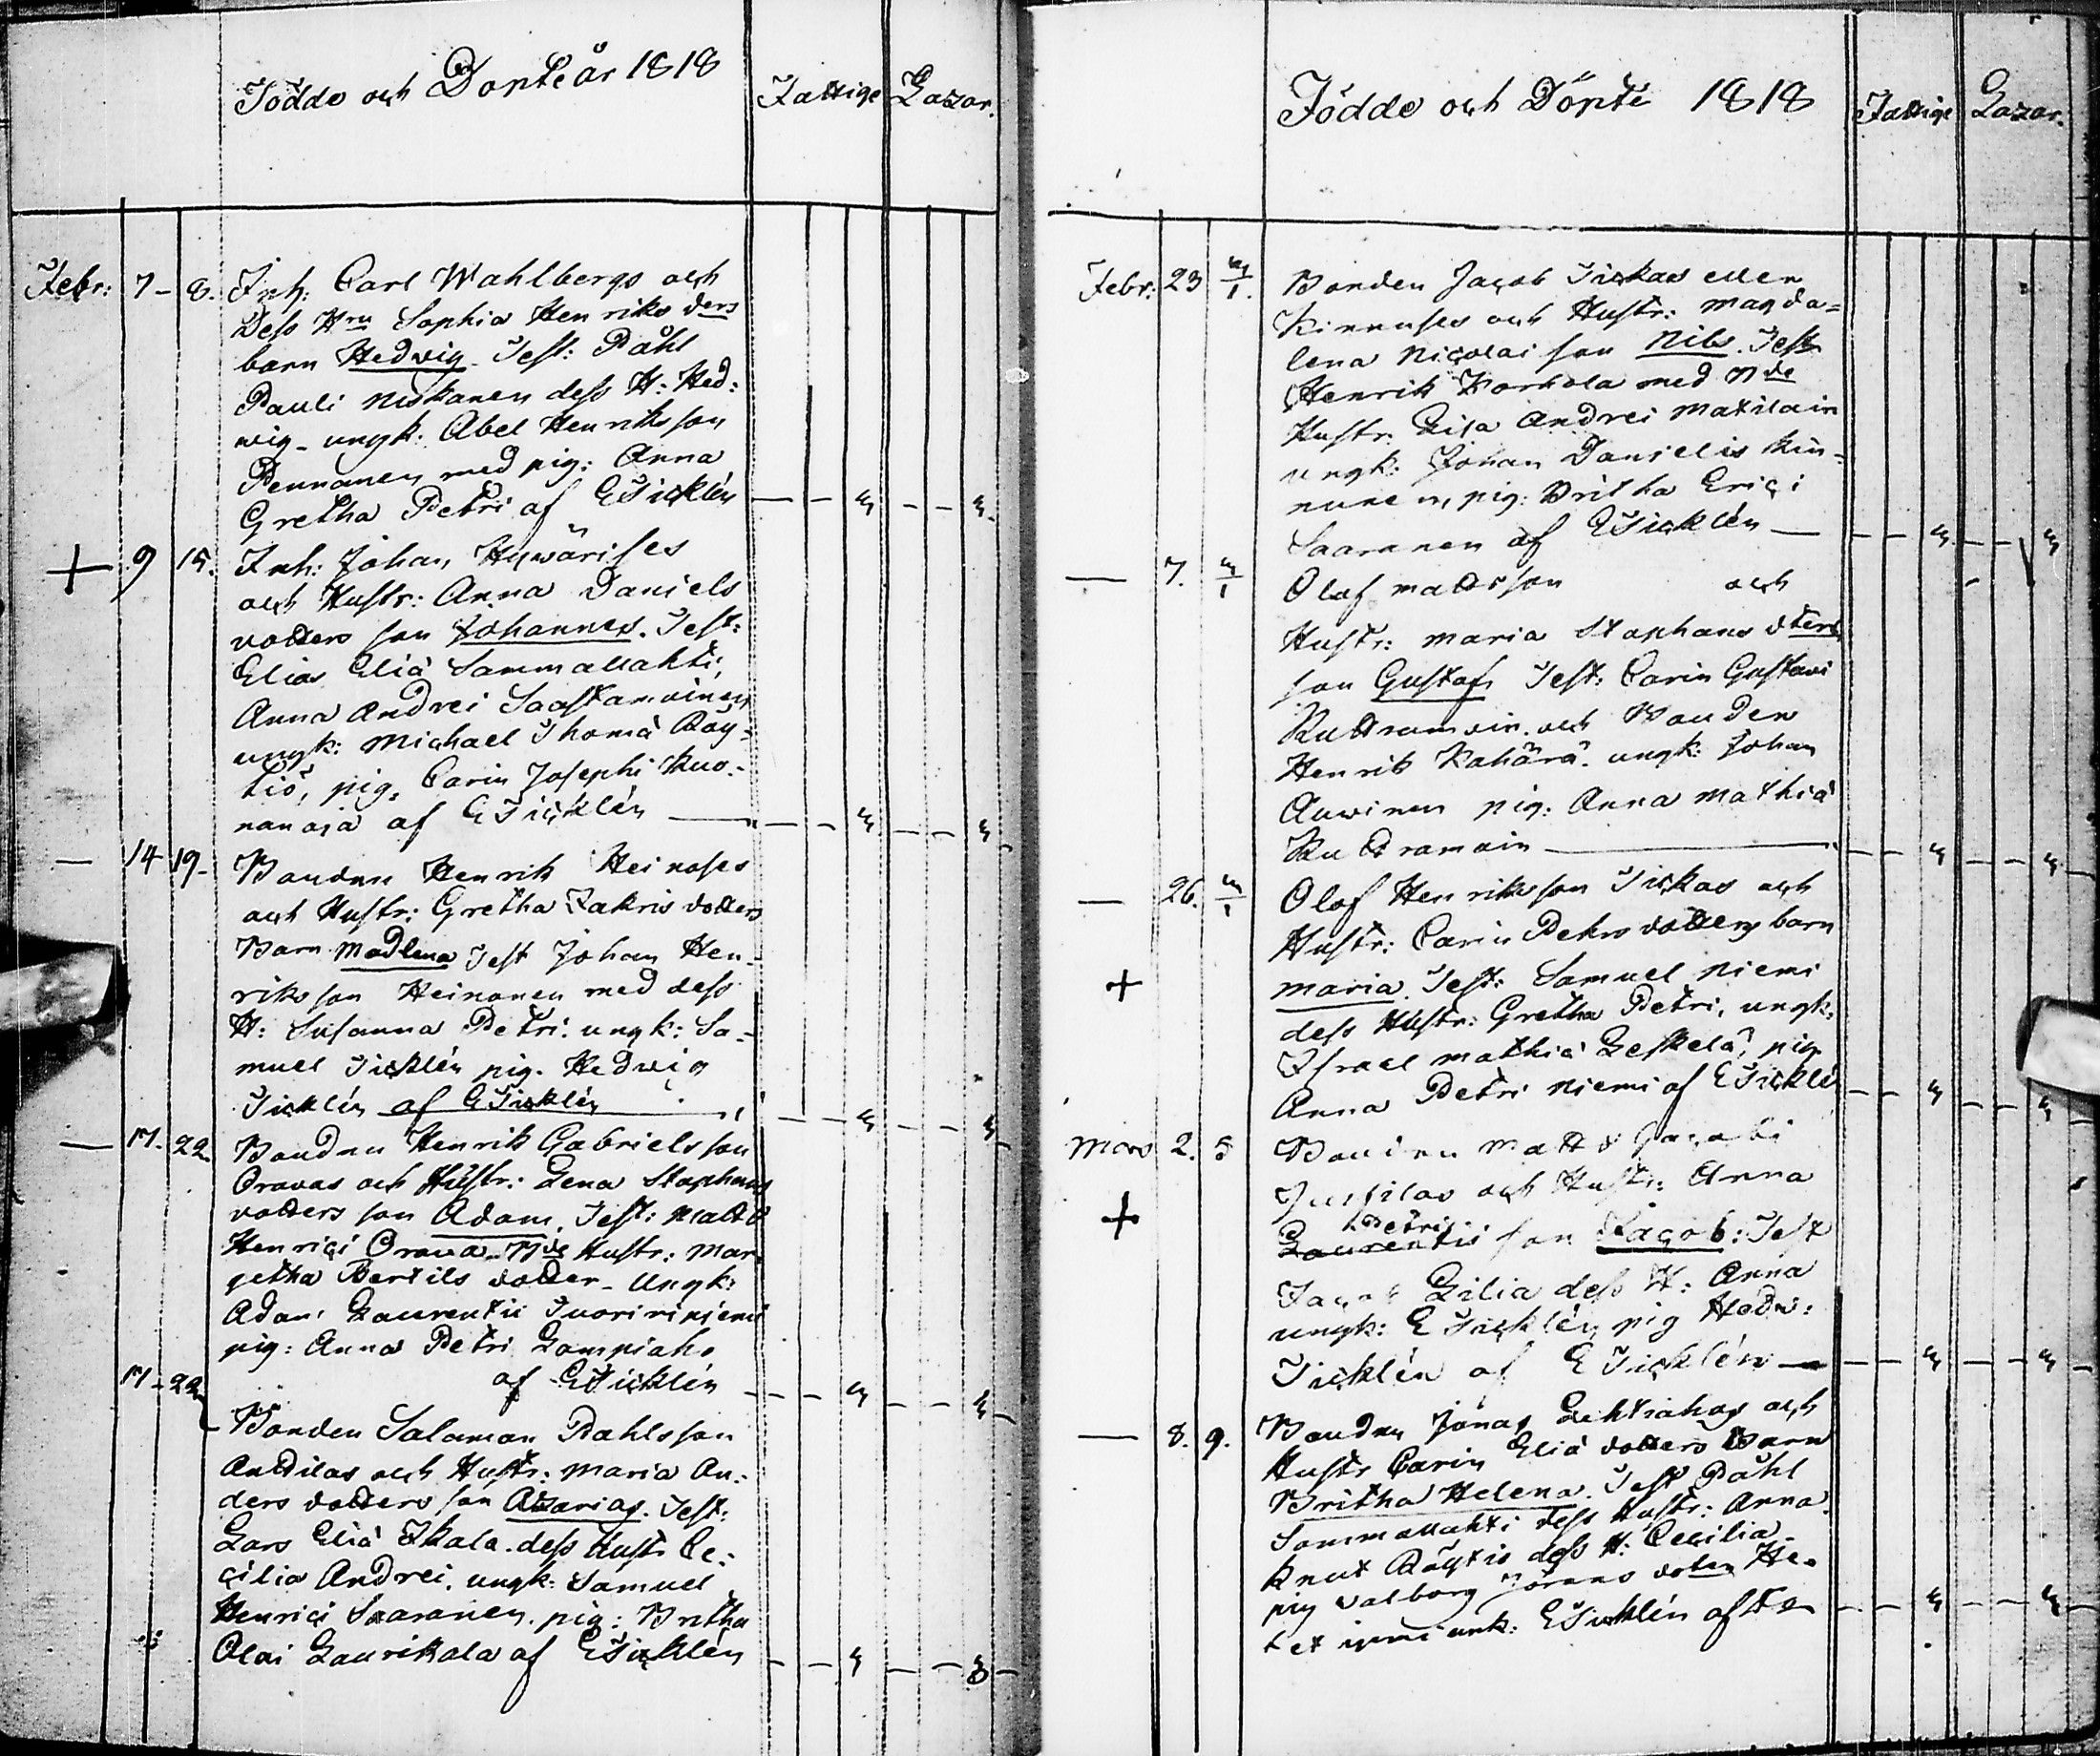 Födde och Döpte år 1818 Fattige Lazar.
Febr: 7 - 8. Inh: Carl Wahlbergs och
Dess Hru Sophia Henriks ders
barn Hedvig. Test: Påhl
Pauli Niskanen dess H: Hed:
wig - ungk: Abel Henriksson
Pennanen med pig: Anna
Gretha Petri af E Ticklén
9 15. Inh: Johan Hywärises
och Hustr: Anna Daniels
dotters son Johannes. Test:
Elias Eliä Sammallahti,
Anna Andrei Saastamoinen
ungk: Michael Thomä Röy=
tiö, pig. Carin Josephi Kuo:
nanoja af E Ticklén
14 19. Bonden Henrik Heinoses
och Hustr: Gretha Zakris dotters
Barn Madlena Test Johan Hen-
riksson Heinonen med dess
H: Susanna Petri. ungk: Sa=
muel Ticklén pig. Hedvig
Ticklén af E Ticklén
17. 22. Bonden Henrik Gabrielsson
Oravas och Hustr: Lena Staphans
dotters son Adam. Test: Matts
Henrici Orava. Mde Hustr: Mar
getha Bertils dotter - Ungk:
Adam Laurentii
pig: Anna Petri Lampiaho
af E Ticklén
17 - 22 Bonden Salomon Pahlsson
Anttilas och Hustr: Maria An:
ders dotters son Azarias. Test:
Lars Eliä Ikola. dess Hustr Ce:
cilia Andrei. ungk: Samuel
Henrici Saaranen. pig: Britha
Olai Laurikala af E Ticklén
Födde och Döpte 1818 Fattige Lazar.
Febr: 23 3/1. Bonden Jacob Tickas eller
Kinnuses och Hustr: Magda=
lena Nicolai son Nils. Test
Henrik Korhola med Mde
Hustr. Lisa Andrei Matilain
ungk: Johan Danielis Kin=
nunen, pig: Britha Erici
Saaranen af E Ticklén
7. 3/1 Olof Mattsson och
Hustr: Maria Staphans dters
son Gustaf, Test: Carin Gustavi
Kuttramoin. och Bonden
Henrik Kahärä. ungk: Johan
Auvinen pig: Anna Mathiä
Kuttramoin
26. 3/1 Olof Henriksson Tickas och
Hustr: Carin Pehrs dotters barn
Maria. Test: Samuel Niemi
dess Hustr: Gretha Petri, ungk:
Israel Mathiä Leskelä, pig.
Anna Petri Niemi af E Ticklén
Mars 2. 5 Bonden Matts Jacobi
Juntilas och Hustr: Anna
Petri
Laurentii son Jacob: Test
Jacob Lilia dess H: Anna
ungk: E Ticklén pig Hedv:
Ticklén af E Ticklén
8. 9. Bonden Jonas Lehtiahos och
Hustr Carin Eliä dotters Barn
Britha Helena. Test Påhl
Sammallahti dess Hustr: Anna
Knut Röytiö dess H: Cecilia
pig Walborg Jörans doter He-
E Ticklén af